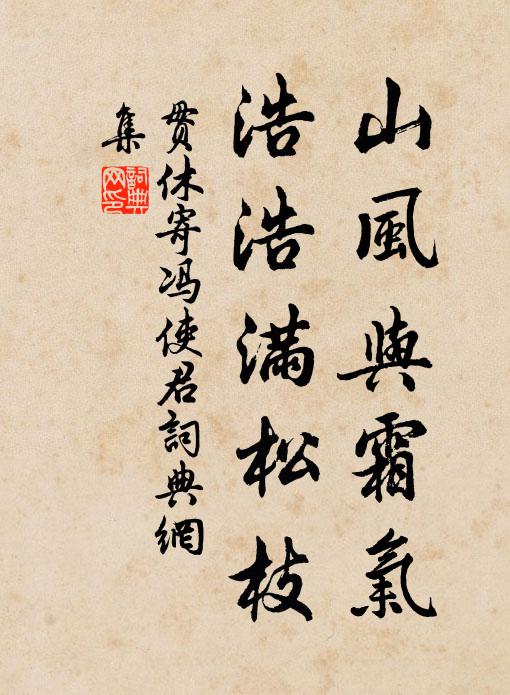 山風與霜氣
浩浩滿松枝
貫休寄冯使君詞典網
集
詞典
网印